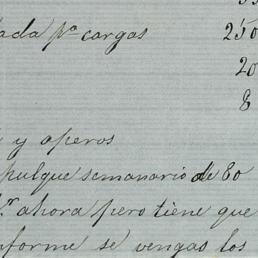 ada pa cargas 250
20
8
y aperos
pulque semanario de 80
r ahora pero tiene que
nforme se vengas los